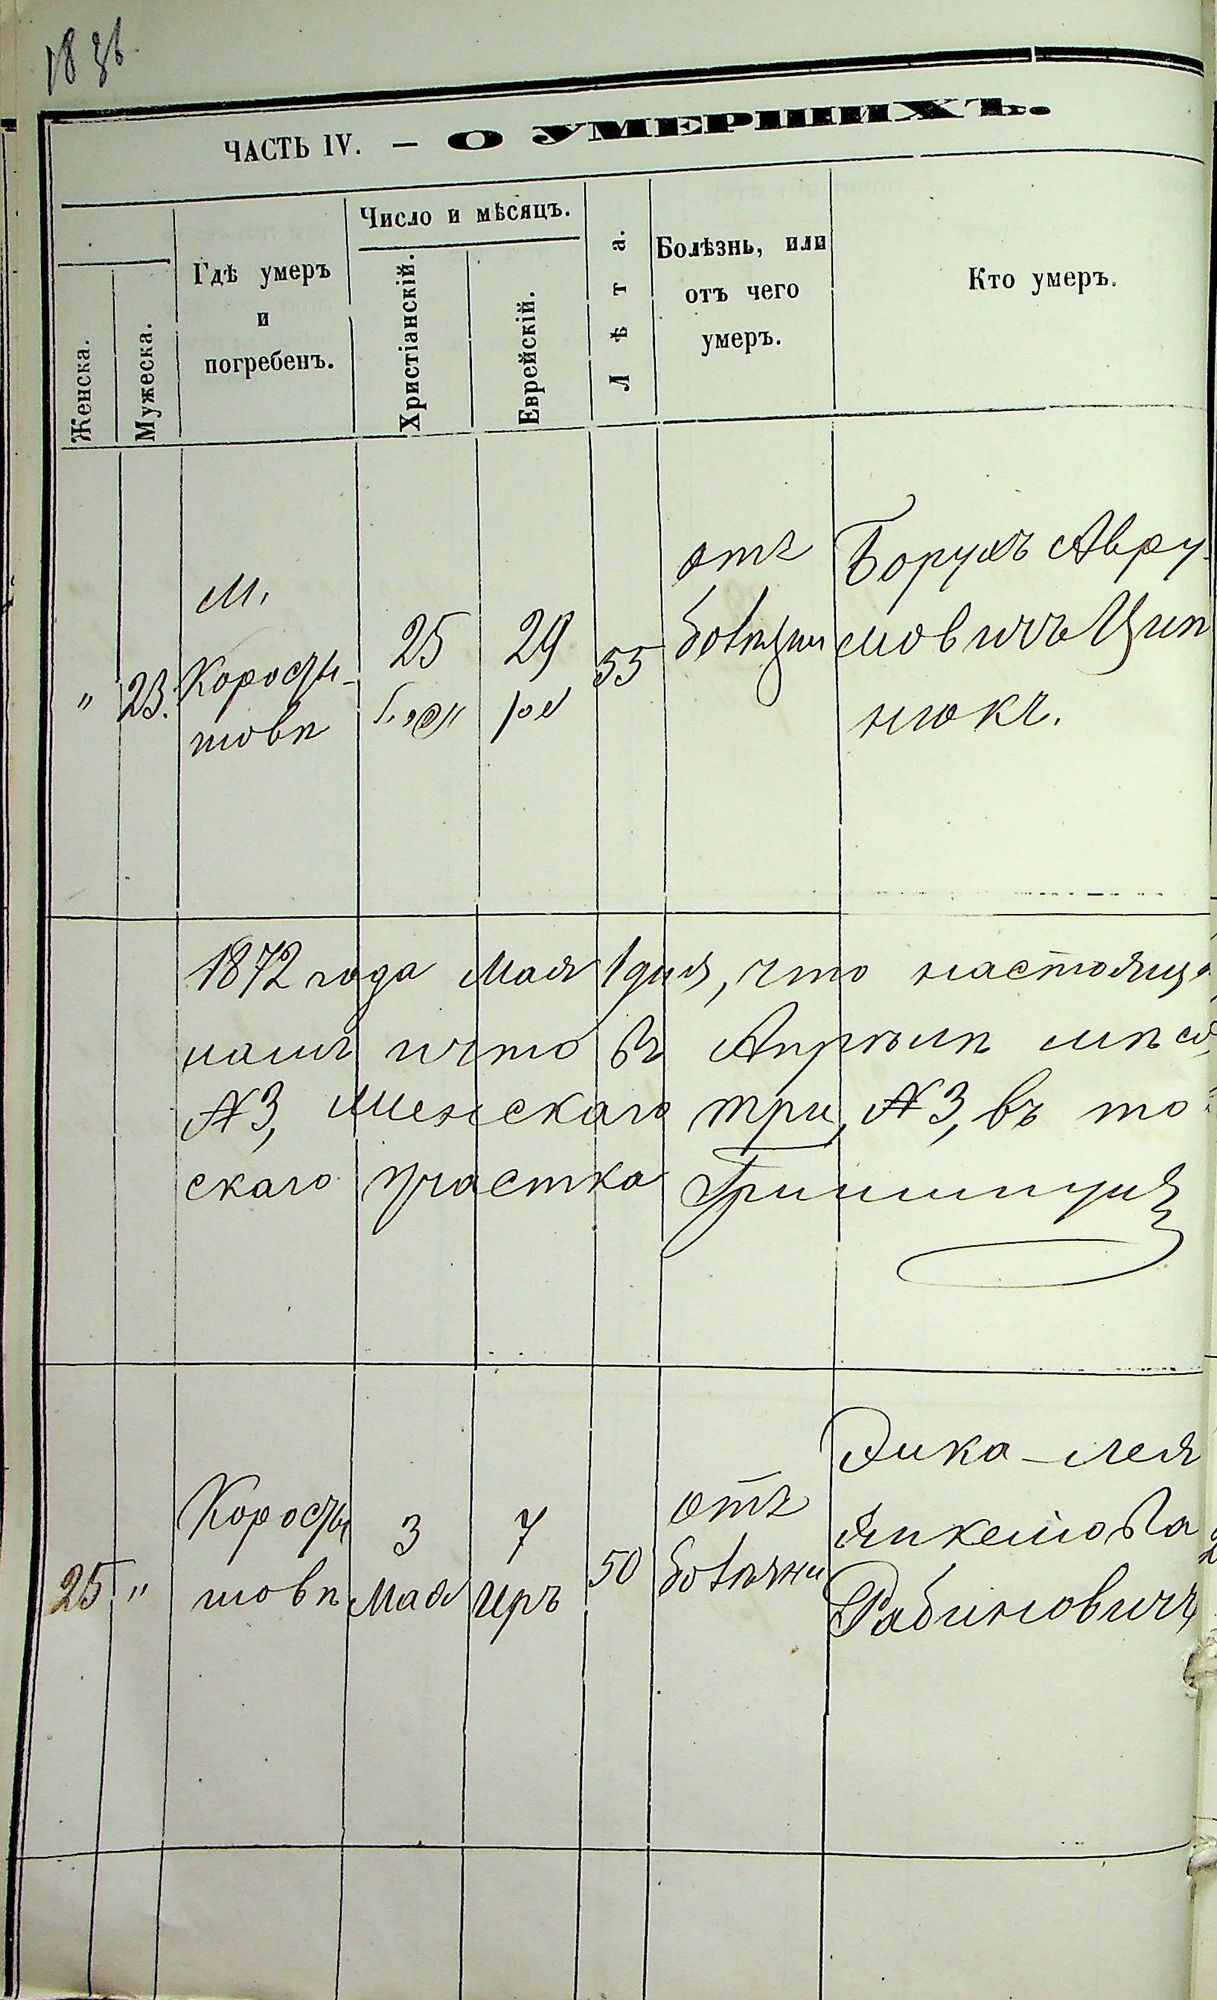 ЧАСТЬ IV. — О УМЕРШИХЪ.
Женска.
Мужеска.
Гдѣ умеръ
и
погребенъ.
Число и мѣсяцъ.
Христіанскій.
Еврейскій.
Лѣта.
Болѣзнь, или
отъ чего
умеръ.
Кто умеръ.
"
23.
м.
Коросты-
шовѣ
25
29
55
отъ
болѣзни
Борухъ Авру-
мовичъ Цип
нюкъ.
1872 года Мая 1 дня, что настоящ
намъ и что въ Апрѣлѣ мѣся
№3, Менскаго три, №3, въ то
скаго Участка
25
"
Коросты
шовѣ
3
Мая
7
Иръ
50
отъ
Лея
Янкелова
Рабиновичъ